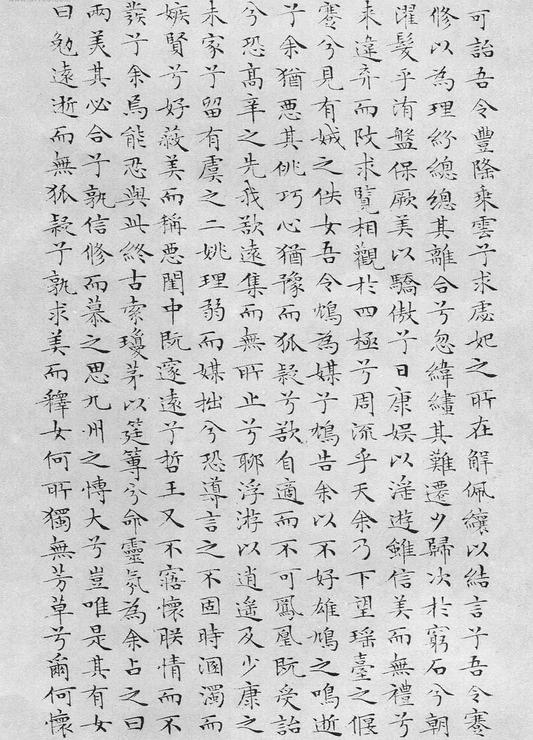 可詒吾令豐隆乘雲兮求虙妃之所在解佩纕以結言兮吾令蹇
修以為理紛總總其離合兮忽緯繣其難遷夕歸次於窮石兮朝
濯髮乎洧盤保厥美以驕傲兮日康娛以淫遊雖信美而無禮兮
来違弃而改求覽相觀於四極兮周流乎天余乃下望瑤臺之偃
蹇兮見有娀之佚女吾令鴆為媒兮鴆告余以不好雄鳩之鳴逝
兮余猶惡其佻巧心猶豫而狐疑兮欲自適而不可鳳凰既受詒
兮恐高辛之先我欲遠集而無所止兮聊浮游以逍遙及少康之
未家兮留有虞之二姚理弱而媒拙兮恐導言之不固時溷濁而
嫉賢兮好蔽美而稱惡閨中既邃遠兮哲王又不寤懷朕情而不
發兮余烏能忍與此終古索瓊茅以筳篿兮命靈氛為余占之曰
兩美其必合兮孰信修而慕之思九州之博大兮豈唯是其有女
曰勉遠逝而無狐疑兮孰求美而釋女何所獨無芳草兮爾何懷